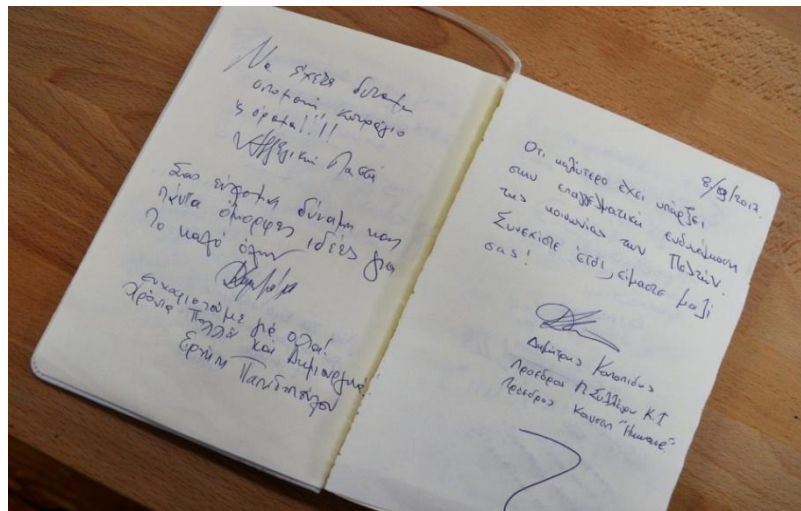 Να έχετε δύναμη
υπομονή, κουράγιο
& όραμα!!!
Αγγελική
Σας εύχομαι δύναμη και
πάντα όμορφες ιδέες για
το καλό όλων
ευχαριστούμε για όλα!
Χρόνια Πολλά και Δημιουργικά!
Ειρήνη
8/9/2017
Ότι καλύτερο έχει υπάρξει
στην επαγγελματική ενδυνάμωση
της κοινωνίας των Πολιτών.
Συνεχίστε έτσι, είμαστε μαζί
σας!
Δημήτρης
Πρόεδρος Π. Συλλόγου Κ.Ι
Πρόεδρος